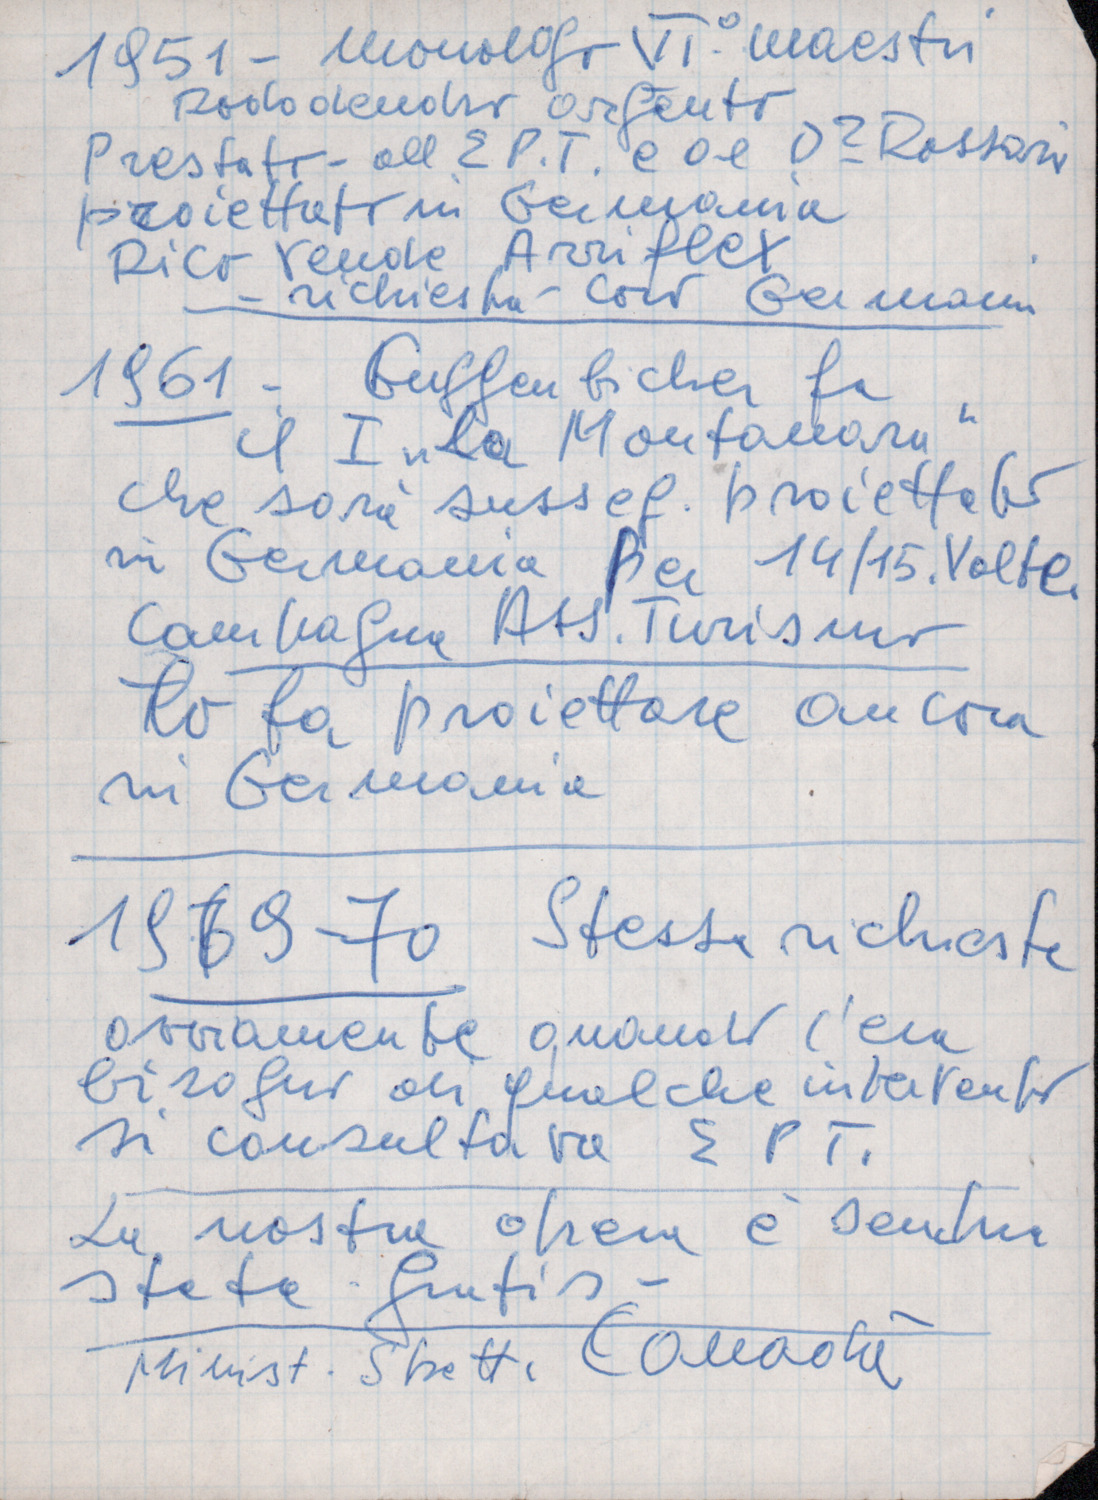 1951 - Monologo VI.° Maestri
Rododendro argento
Prestato - all E P.T. e al Dr Rossari
proiettato in Germania
Rico vende Arriflex
- richiesta - Coro Germania
1961 - Guggenbicher fa
il I "La Montanara"
che sarà susseg. proiettato
in Germania Per 14/15. Volte
Campagna Ass. Turismo
lo fa proiettare ancora
in Germania
1969-70 Stessa richiesta
ovviamente quando c'era
bisogno di qualche intervento
si consultava E P T.
La nostra opera è sempre
stata - gratis -
Minist. Spett. Canadà